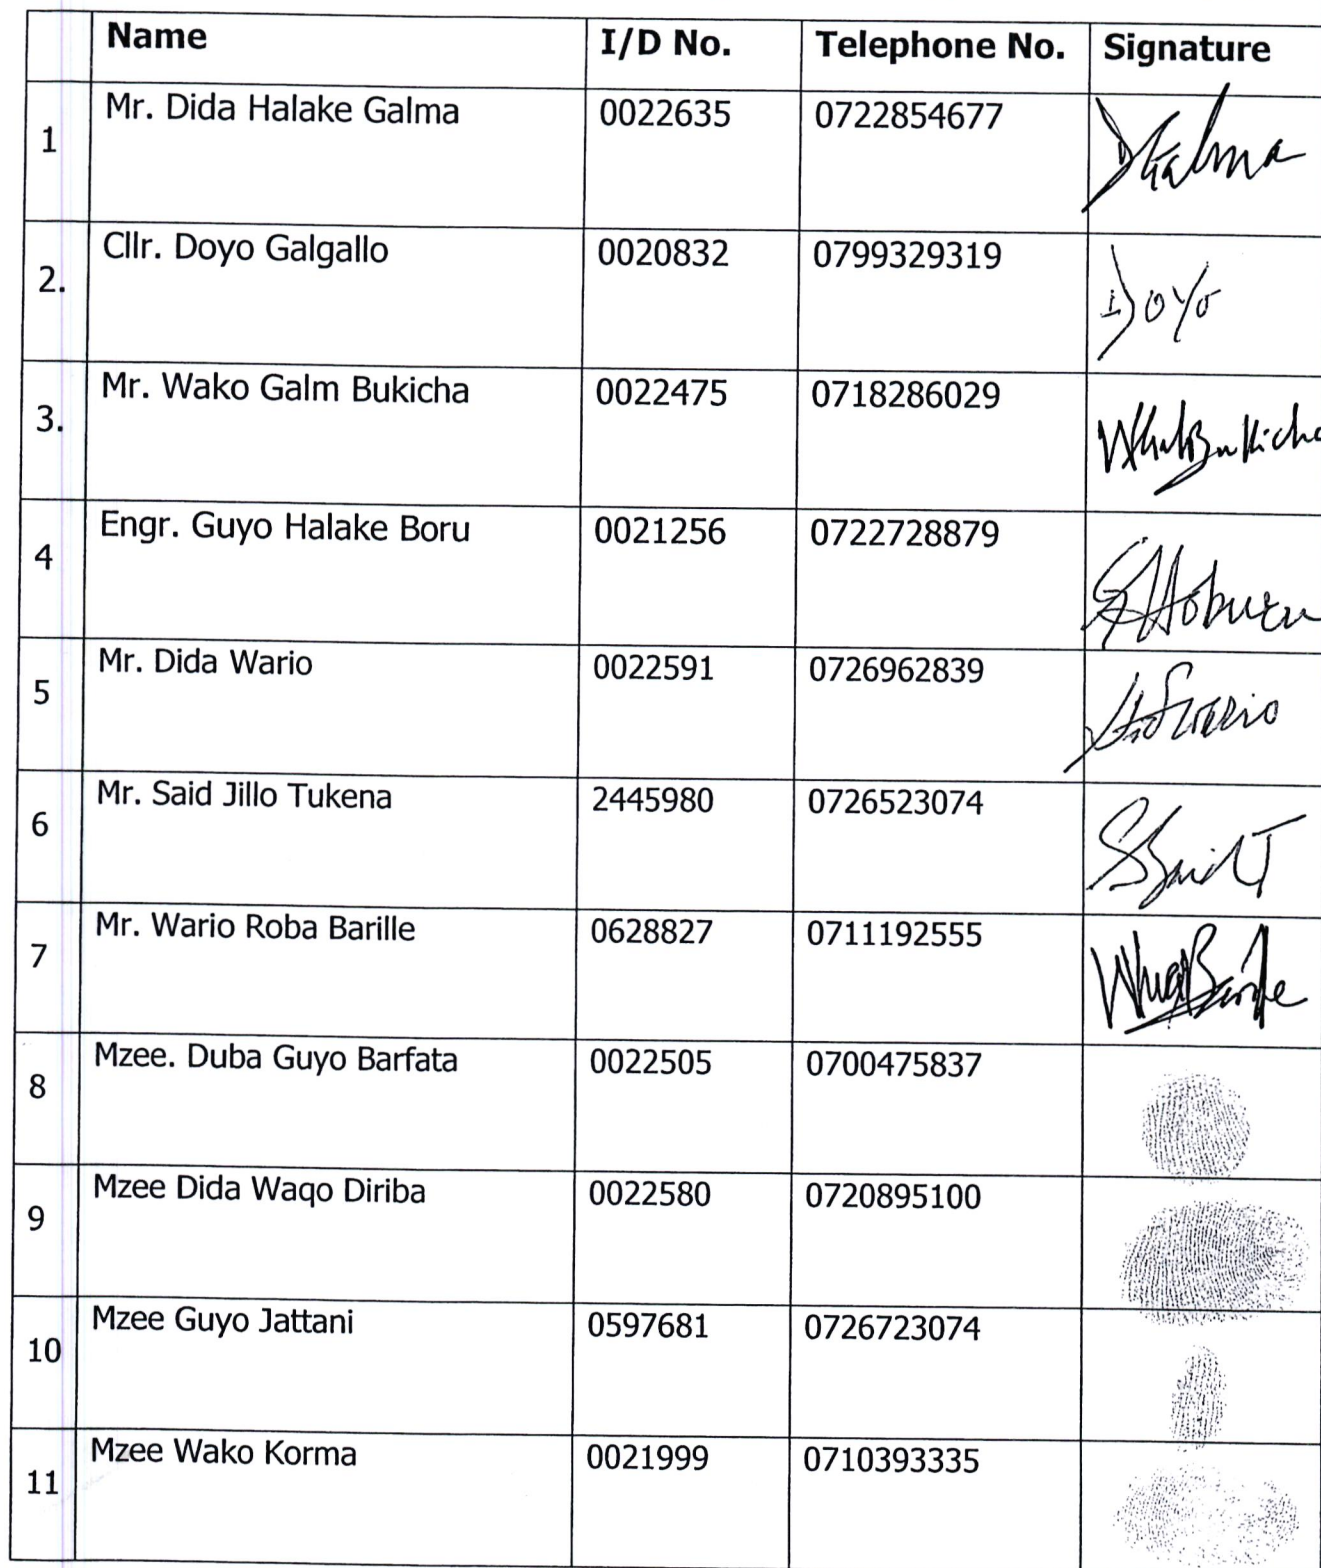 Name I/D No. Telephone No. Signature
1 Mr. Dida Halake Galma 0022635 0722854677 DGalma
2. Cllr. Doyo Galgallo 0020832 0799329319 Doyo
3. Mr. Wako Galm Bukicha 0022475 0718286029
4 Engr. Guyo Halake Boru 0021256 0722728879
5 Mr. Dida Wario 0022591 0726962839
6 Mr. Said Jillo Tukena 2445980 0726523074
7 Mr. Wario Roba Barille 0628827 0711192555
8 Mzee. Duba Guyo Barfata 0022505 0700475837
9 Mzee Dida Waqo Diriba 0022580 0720895100
10 Mzee Guyo Jattani 0597681 0726723074
11 Mzee Wako Korma 0021999 0710393335